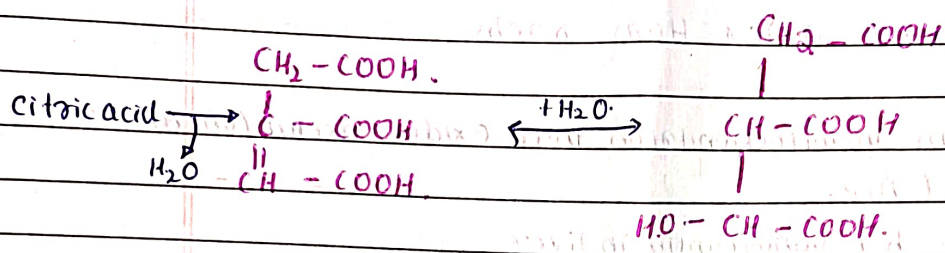 CH2 - COOH
CH2 - COOH.
citric acid → C - COOH +H2O. CH - COOH
H2O CH - COOH
HO - CH - COOH.